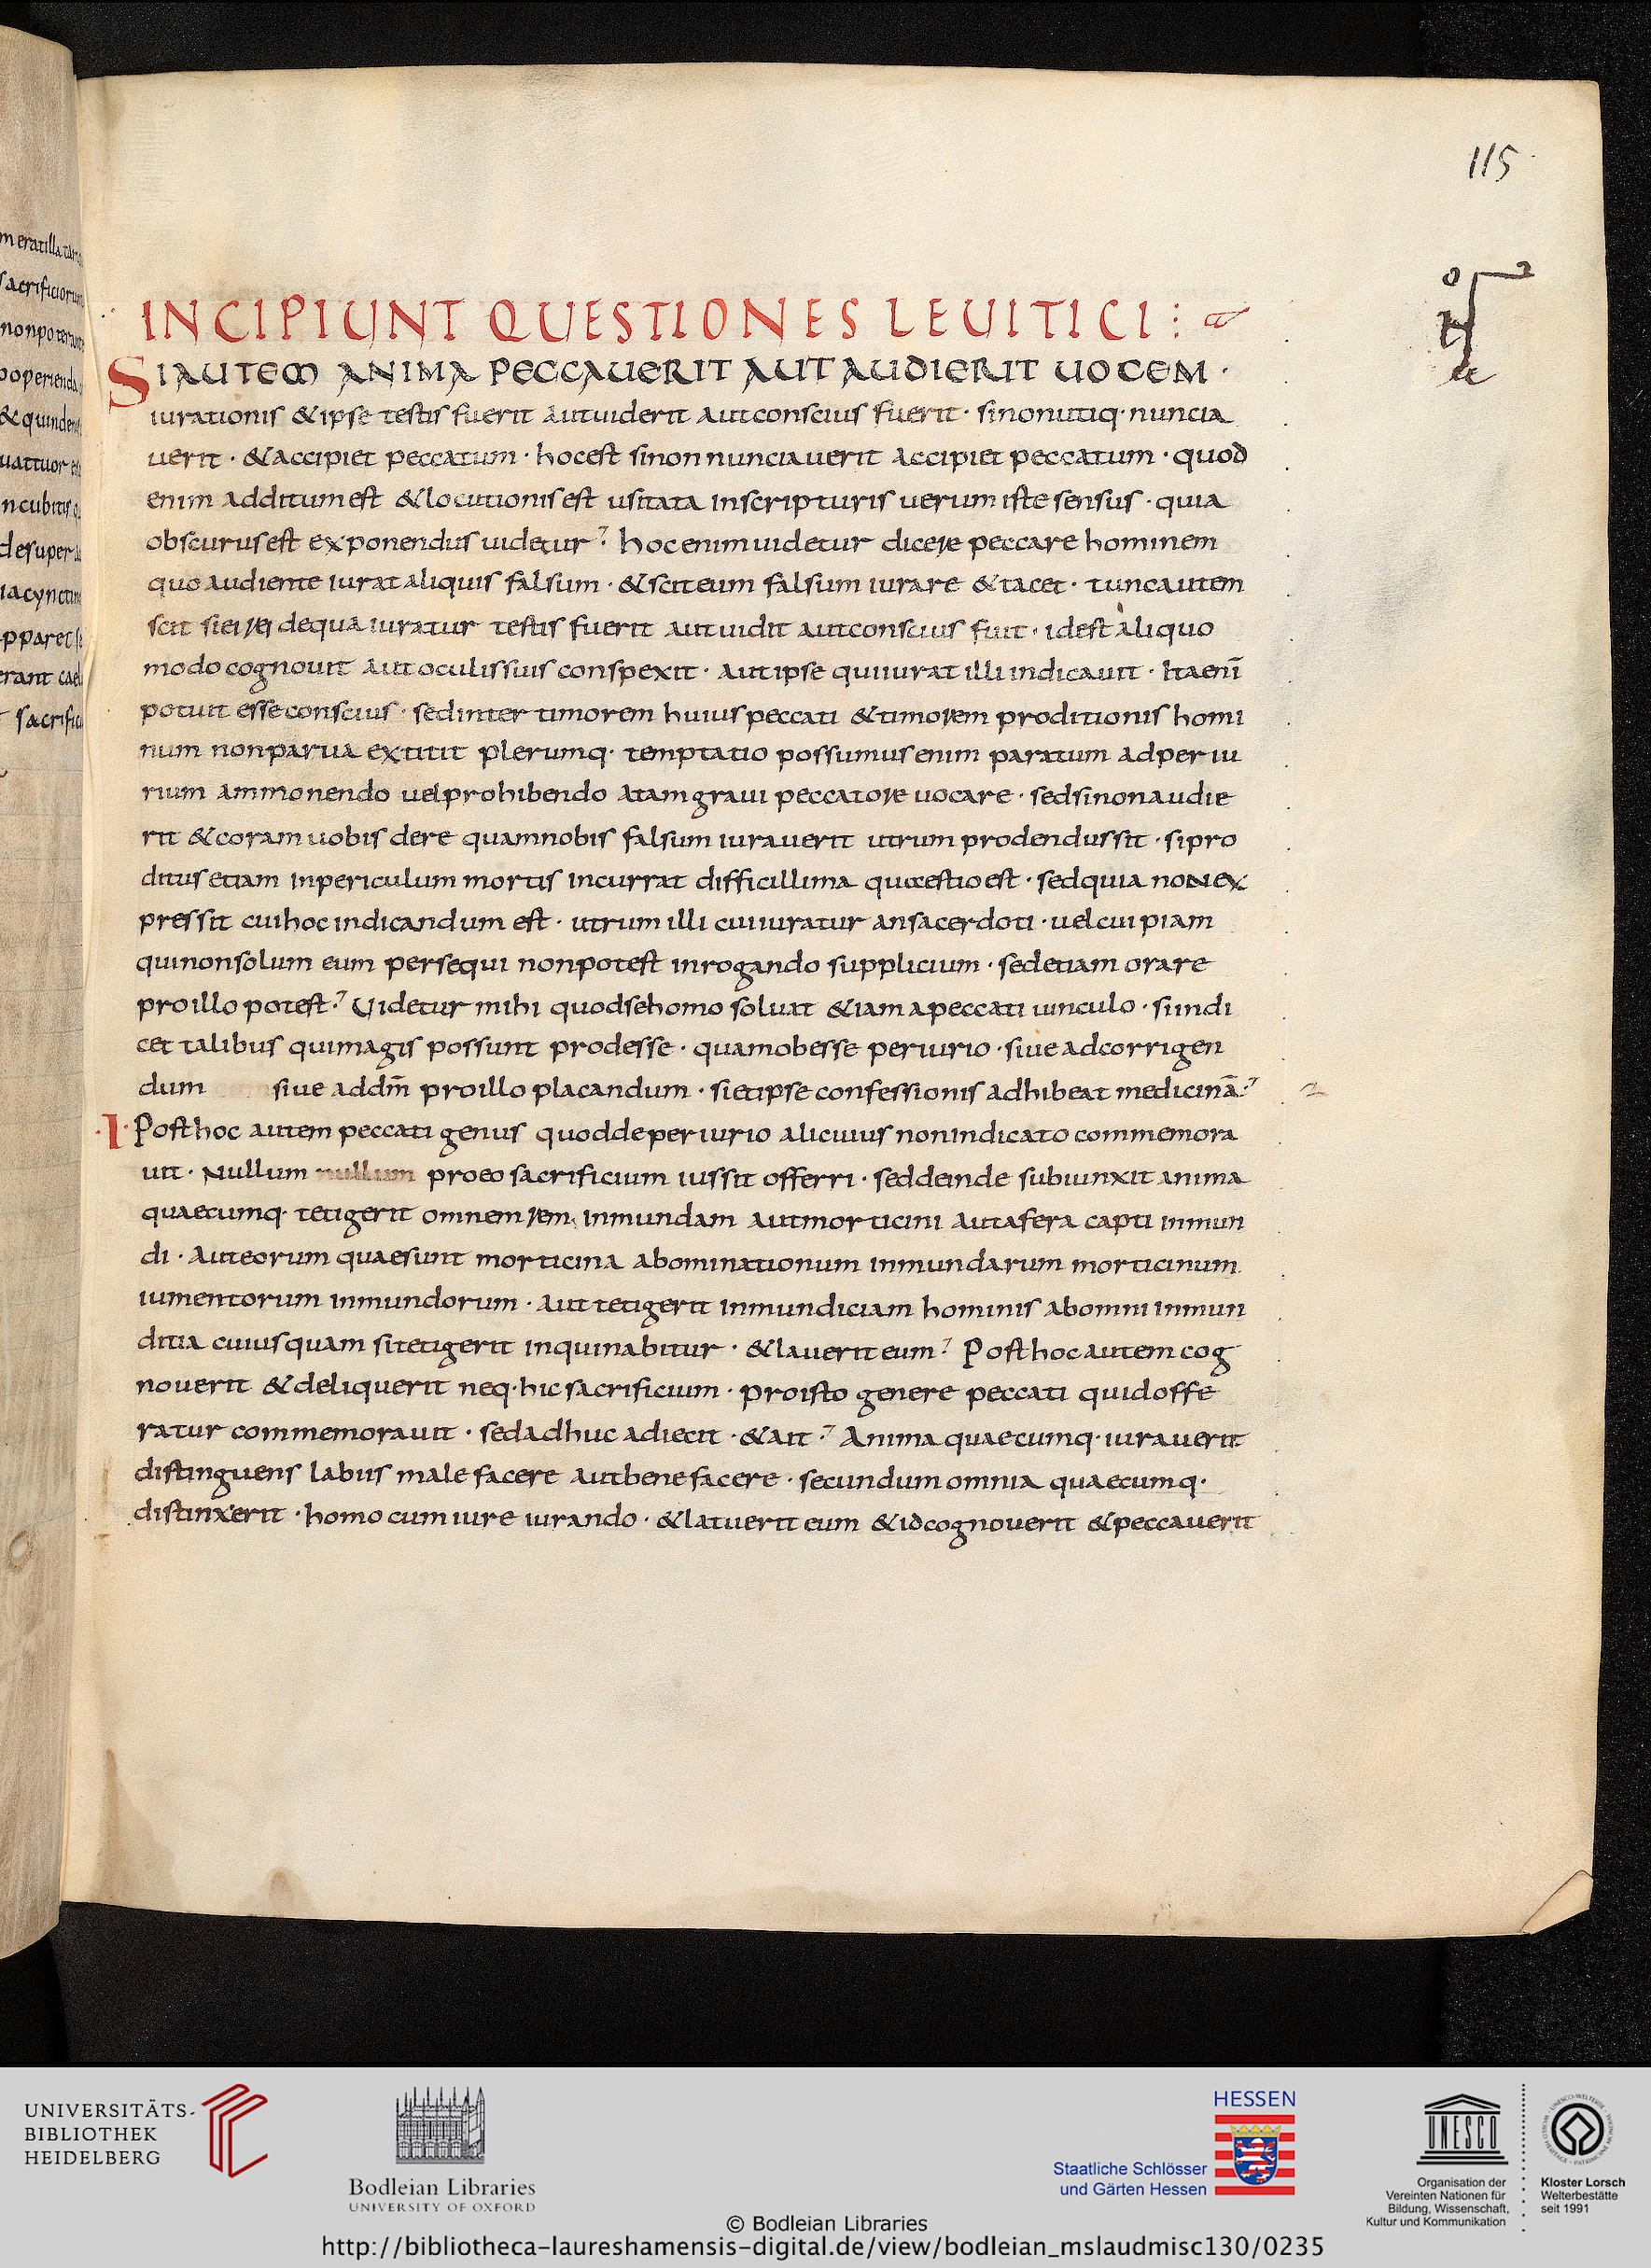 115
INCIPIUNT QUESTIONES LEUITICI :
SIAUTEM ANIMA PECCAUERIT AUT AUDIERIT UOCEM ·
iurationis &ipse testis fuerit autuiderit autconscius fuerit · sinonutiq· nuncia
uerit · &accipiet peccatum · hocest sinonnunciauerit accipiet peccatum · quod
enim additumest &locutionisest usitata inscripturis uerum iste sensus · quia
obscurusest exponendus uidetur? hocenimuidetur dicere peccare hominem
quo audiente iurat aliquis falsum · &sciteum falsum iurare &tacet · tuncautem
scit siei rei dequa iuratur testis fuerit autuidit autconscius fuit · idest aliquo
modo cognouit aut oculissuis conspexit · autipse quiiurat illi indicauit · itaeni̅
potuit esseconscius · sedinter timorem huiuspeccati &timorem proditionis homi
num nonparua extitit plerumq· temptatio possumusenim paratum adperiu
rium ammonendo uelprohibendo atamgraui peccatore uocare · sedsinonaudie
rit &coram uobis dere quamnobis falsum iurauerit utrum prodendussit · sipro
ditusetiam inpericulum mortis incurrat difficillima quaestioest · sedquia nonex
pressit cuihocindicandum est · utrum illi cuiiuratur ansacerdoti · uelcuipiam
quinonsolum eum persequi nonpotest inrogando supplicium · sedetiam orare
proillo potest? Uidetur mihi quodsehomo soluat &iam apeccati uinculo · siindi
cet talibus quimagis possunt prodesse · quamobesse periurio · siue adcorrigen
dum siue addm̅ proillo placandum · sietipse confessionis adhibeat medicina̅
I Posthoc autem peccati genus quoddeperiurio alicuius nonindicato commemora
uit · Nullum nullum proeo sacrificium iussit offerri · seddeinde subiunxit anima
quaecumq· tetigerit omnem rem inmundam autmorticini autafera capti inmun
di · Auteorum quaesunt morticina abominationum inmundarum morticinum
iumentorum inmundorum · aut tetigerit inmundiciam hominis abomni inmun
ditia cuiusquam sitetigerit inquinabitur · &lauerit eum? Posthocautem cog
nouerit &deliquerit neq·hic sacrificium · proisto genere peccati quidoffe
ratur commemorauit · sedadhuc adiecit · &ait? Anima quaecumq· iurauerit
distinguens labiis male facere autbenefacere · secundum omnia quaecumq·
distinxerit · homo cum iure iurando · &latuerit eum &idcognouerit &peccauerit
UNIVERSITÄTS-
BIBLIOTHEK
HEIDELBERG
Bodleian Libraries
UNIVERSITY OF OXFORD
© Bodleian Libraries
http://bibliotheca-laureshamensis-digital.de/view/bodleian_mslaudmisc130/0235
HESSEN
Staatliche Schlösser
und Gärten Hessen
UNESCO
Organisation der
Vereinten Nationen für
Bildung, Wissenschaft,
Kultur und Kommunikation
Kloster Lorsch
Welterbestätte
seit 1991